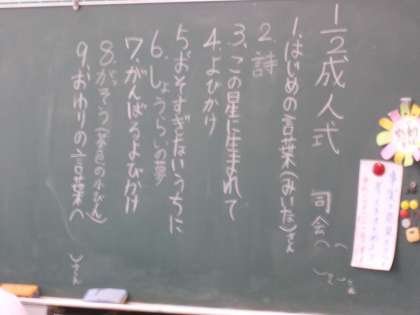 1/2成人式 司会
1.はじめの言葉(みいた)さん
2.詩
3.この星に生まれて
4.よびかけ
5.おそすぎないうちに
6.しょうらいの夢
7.がんばるよびかけ
8.がっそう(茶色の小びん)
9.おわりの言葉へ さん